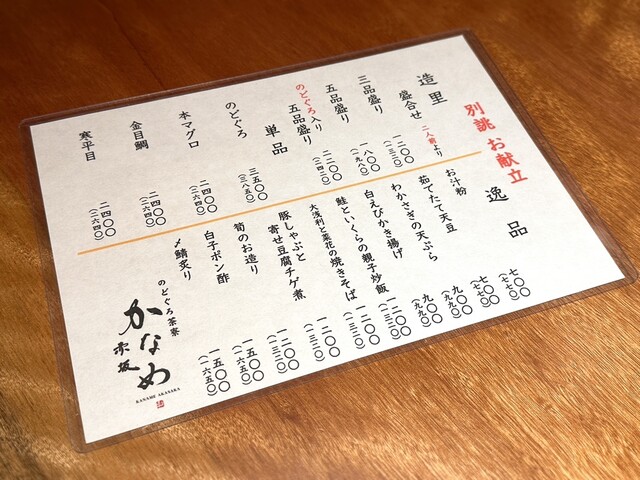 別誂 お献立
造里
盛合せ 二人前より
三品盛り 一二〇〇
(一三二〇)
五品盛り 一八〇〇
(一九八〇)
のどぐろ入り
五品盛り 二二〇〇
(二四二〇)
単品
のどぐろ 三五〇〇
(三八五〇)
本マグロ 二四〇〇
(二六四〇)
金目鯛 二四〇〇
(二六四〇)
寒平目 二四〇〇
(二六四〇)
逸品
お汁粉 七〇〇
(七七〇)
茹でたて天豆 七〇〇
(七七〇)
わかさぎの天ぷら 九〇〇
(九九〇)
白えびかき揚げ 九〇〇
(九九〇)
鮭といくらの親子炒飯 一二〇〇
(一三二〇)
大浅利と菜花の焼きそば 一二〇〇
(一三二〇)
豚しゃぶと
寄せ豆腐チゲ煮 一二〇〇
(一三二〇)
筍のお造り 一二〇〇
(一三二〇)
白子ポン酢 一五〇〇
(一六五〇)
〆鯖炙り 一五〇〇
(一六五〇)
のどぐろ茶寮
かなめ
赤坂
KANAME AKASAKA